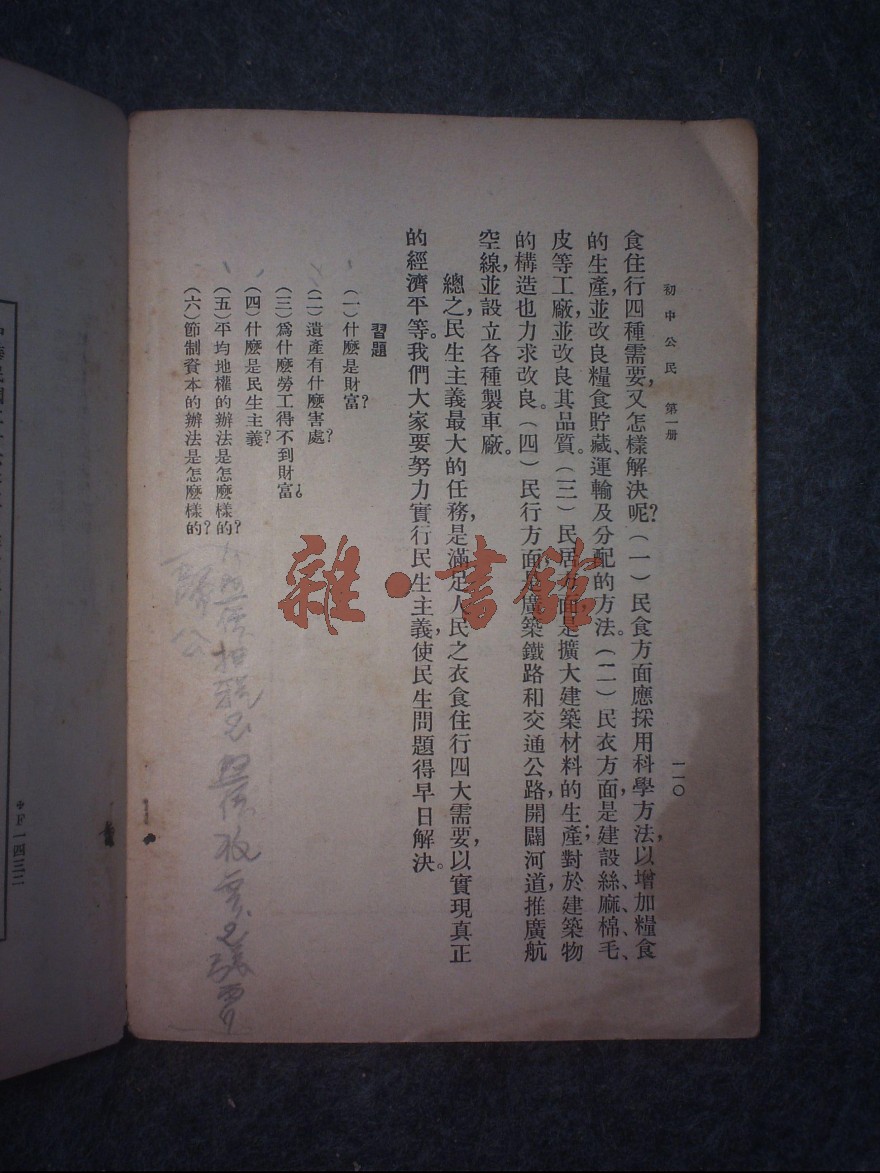 初中公民 第一册
一一〇
食住行四種需要,又怎樣解決呢?(一)民食方面應採用科學方法,以增加糧食
的生產,並改良糧食貯藏、運輸及分配的方法。(二)民衣方面,是建設絲、麻、棉、毛、
皮等工廠,並改良其品質。(三)民居方面是擴大建築材料的生產;對於建築物
的構造也力求改良。(四)民行方面是廣築鐵路和交通公路,開闢河道,推廣航
空線,並設立各種製車廠。
總之,民生主義最大的任務,是滿足人民之衣食住行四大需要,以實現真正
的經濟平等。我們大家要努力實行民生主義,使民生問題得早日解決。
習題
(一)什麼是財富?
(二)遺產有什麼害處?
(三)爲什麼勞工得不到財富?
(四)什麼是民生主義?
(五)平均地權的辦法是怎麼樣的?
(六)節制資本的辦法是怎麼樣的?
雜·書館
F一四三二